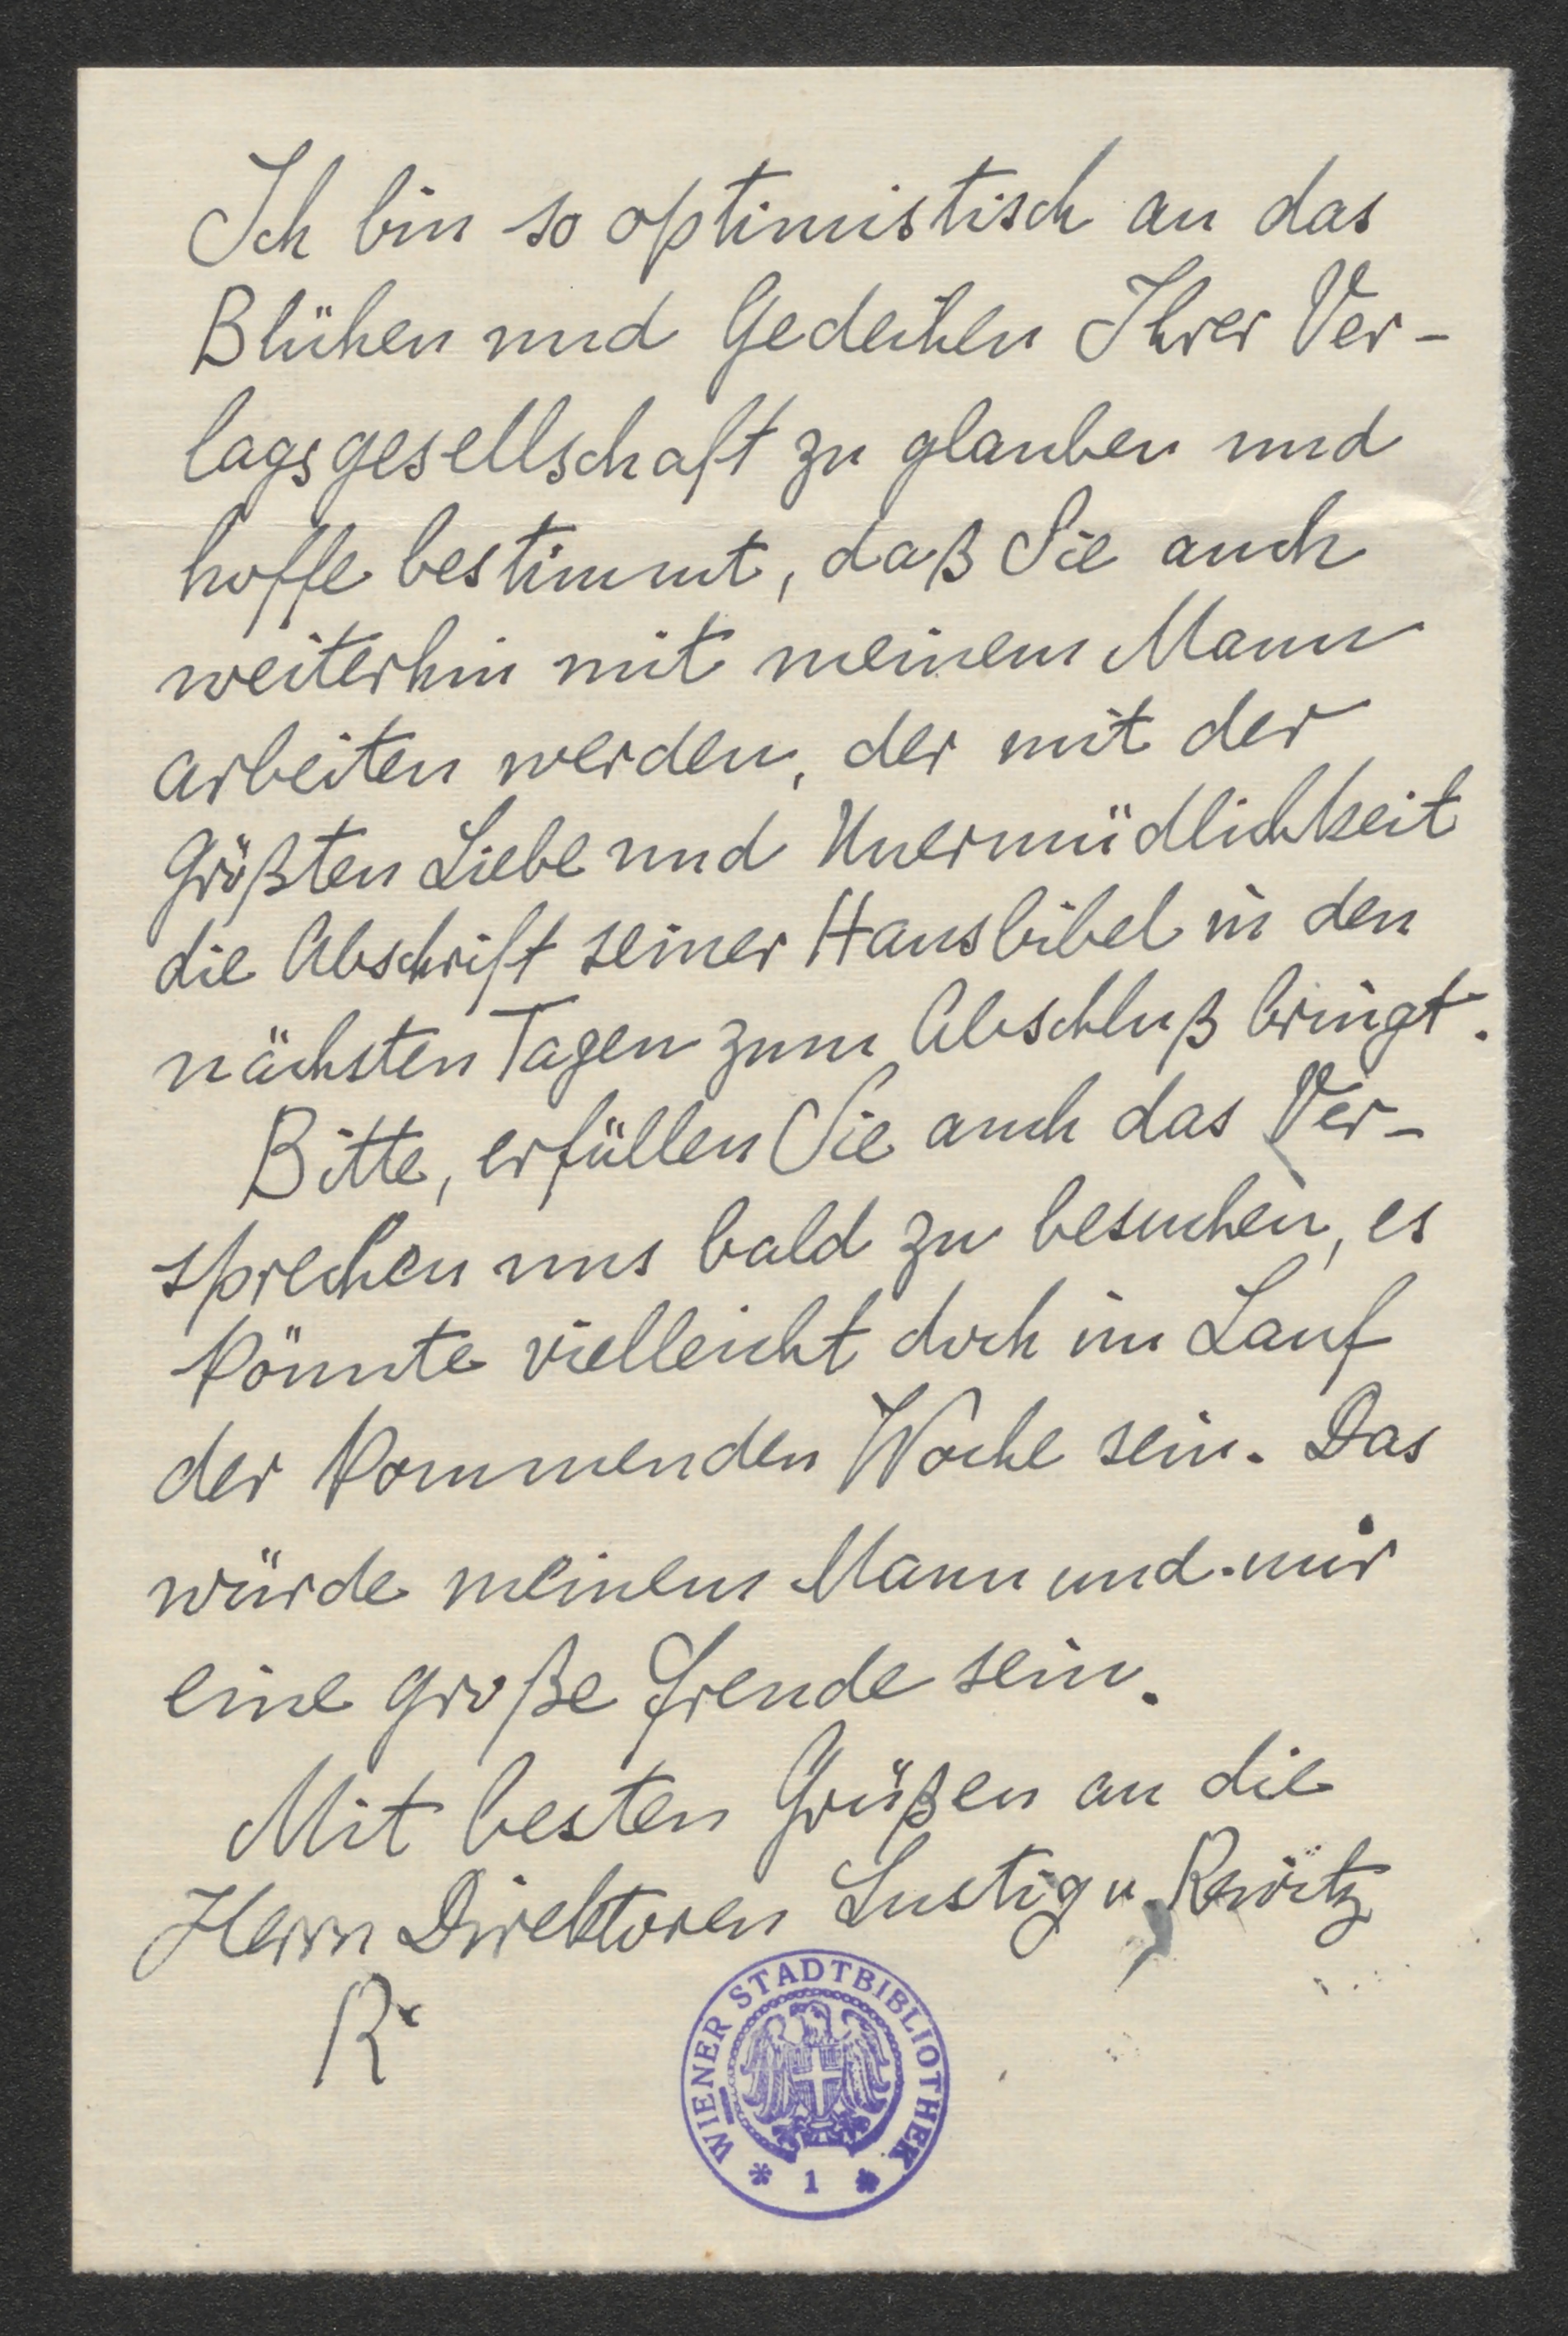 Ich bin so optimistisch an das
Blühen und Gedeihen Ihrer Ver-
lagsgesellschaft zu glauben und
hoffe bestimmt, daß Sie auch
weiterhin mit meinem Mann
arbeiten werden, der mit der
größten Liebe und Unermüdlichkeit
die Abschrift seiner Hausbibel in den
nächsten Tagen zum Abschluß bringt.
Bitte, erfüllen Sie auch das Ver-
sprechen uns bald zu besuchen, es
könnte vielleicht doch im Lauf
der kommenden Woche sein. Das
würde meinem Mann und mir
eine große Freude sein.
Mit besten Grüßen an die
Herrn Direktoren Lustig u.
R
WIENER STADTBIBLIOTHEK
* 1 *